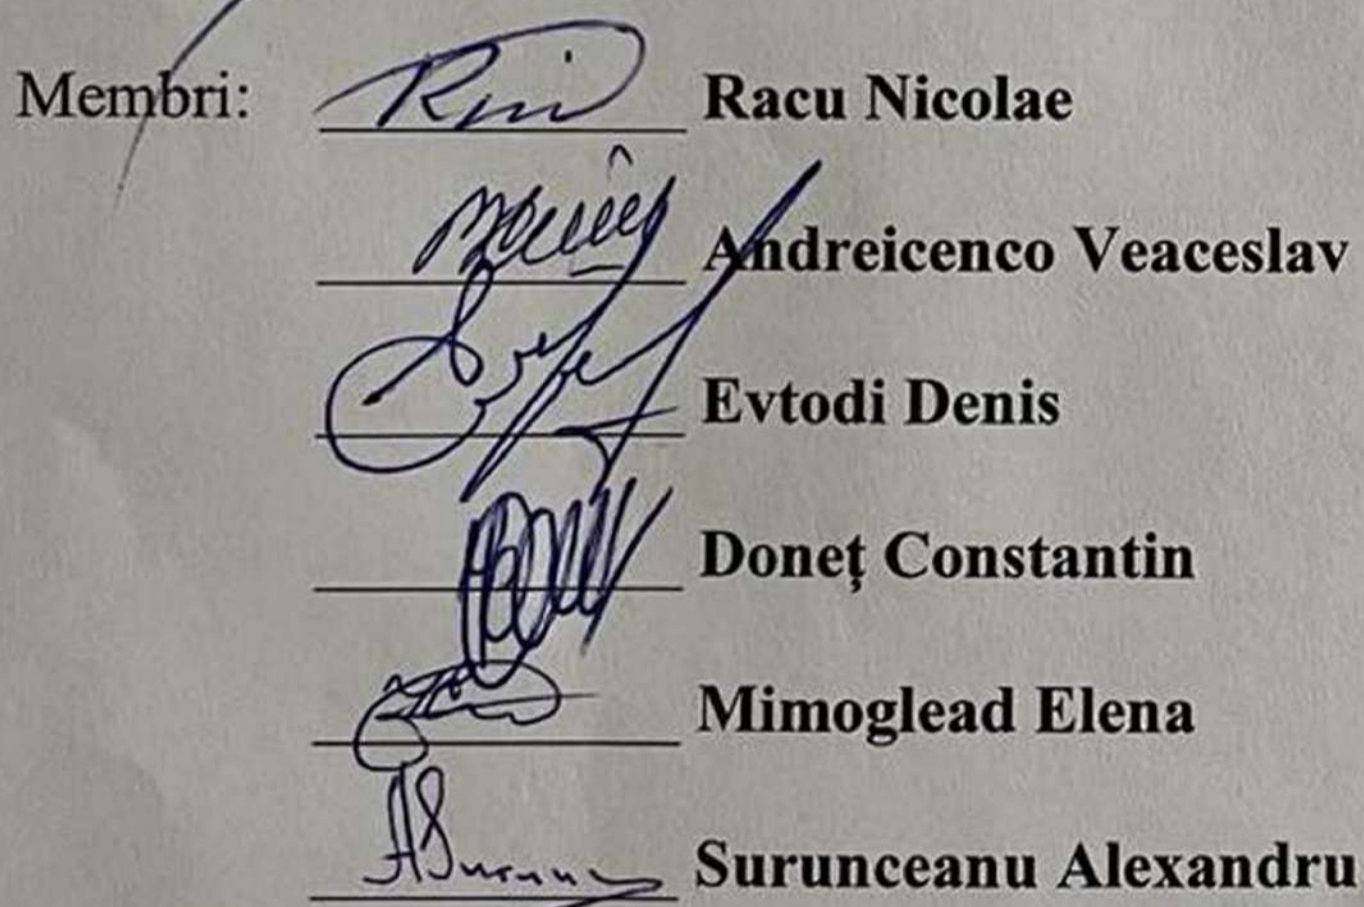 Membri: Racu Nicolae
Andreicenco Veaceslav
Evtodi Denis
Doneț Constantin
Mimoglead Elena
Surunceanu Alexandru